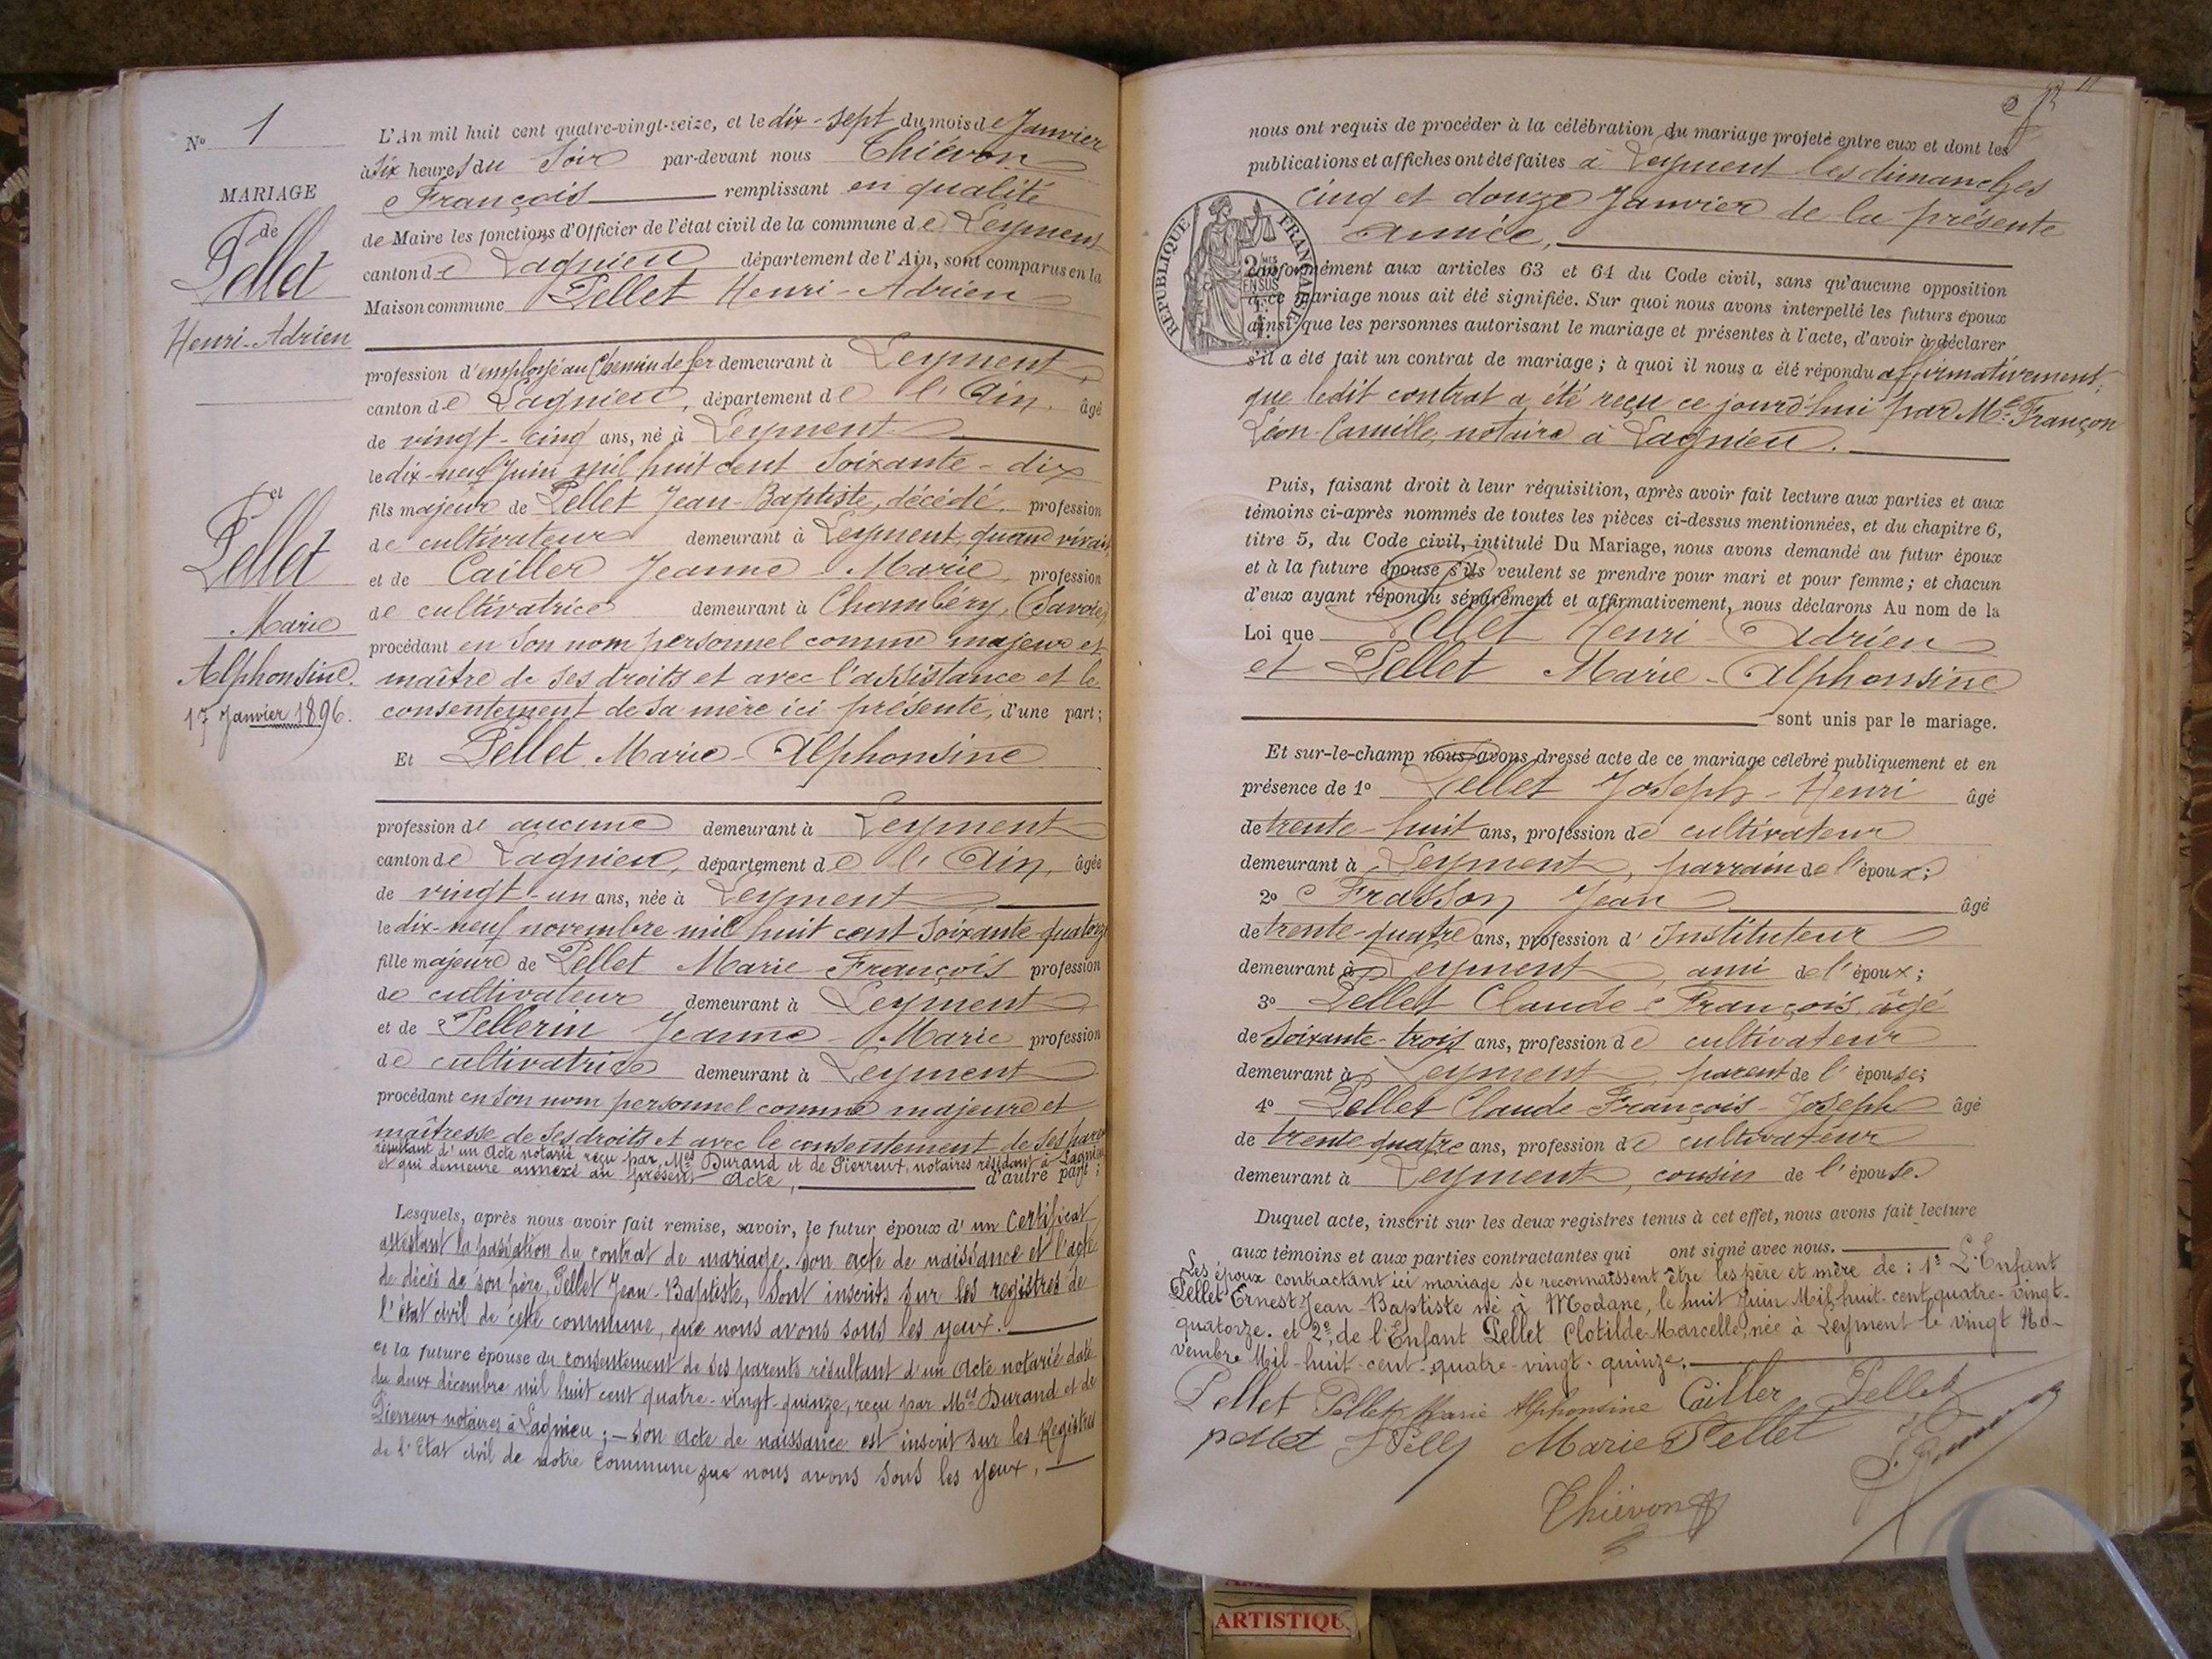 Nº 1
MARIAGE
de
Pellet
Henri-Adrien
et
Pellet
Marie
Alphonsine.
17 Janvier 1896.
L'An mil huit cent quatre-vingt-seize, et le dix-sept du mois de Janvier
à six heures du Soir par-devant nous Thiévon
François remplissant en qualité
de Maire les fonctions d'Officier de l'état civil de la commune de Leyment
canton de Lagnieu département de l'Ain, sont comparus en la
Maison commune Pellet Henri-Adrien
profession d'employé au Chemin de fer demeurant à Leyment,
canton de Lagnieu, département de l'Ain, âgé
de vingt-cinq ans, né à Leyment
le dix-neuf Juin mil huit cent soixante-dix
fils majeur de Pellet Jean-Baptiste, décédé, profession
de cultivateur demeurant à Leyment, quand vivait
et de Cailler Jeanne Marie, profession
de cultivatrice demeurant à Chambéry, (Savoie)
procédant en son nom personnel comme majeur et
maître de ses droits et avec l'assistance et le
consentement de sa mère ici présente, d'une part;
Et Pellet Marie-Alphonsine
profession de aucune demeurant à Leyment
canton de Lagnieu, département de l'Ain, âgée
de vingt-un ans, née à Leyment
le dix-neuf novembre mil huit cent soixante-quatorze
fille majeure de Pellet Marie François profession
de cultivateur demeurant à Leyment
et de Pellerin Jeanne-Marie profession
de cultivatrice demeurant à Leyment
procédant en son nom personnel comme majeure et
maîtresse de ses droits et avec le consentement de ses parents
résultant d'un Acte notarié reçu par Mes Durand et de Pierreux, notaires résidant à Lagnieu
et qui demeure annexé au présent Acte, d'autre part;
Lesquels, après nous avoir fait remise, savoir, le futur époux d'un Certificat
attestant la passation du contrat de mariage. Son acte de naissance et l'acte
de décès de son père, Pellet Jean-Baptiste, sont inscrits sur les registres de
l'état civil de cette commune, que nous avons sous les yeux.
et la future épouse du consentement de ses parents résultant d'un Acte notarié daté
du deux décembre mil huit cent quatre-vingt-quinze, reçu par Mes Durand et de
Pierreux notaires à Lagnieu; — Son Acte de naissance est inscrit sur les Registres
de l'Etat civil de notre Commune que nous avons sous les yeux.
nous ont requis de procéder à la célébration du mariage projeté entre eux et dont les
publications et affiches ont été faites à Leyment les dimanches
cinq et douze Janvier de la présente
année,
REPUBLIQUE FRANÇAISE
conformément aux articles 63 et 64 du Code civil, sans qu'aucune opposition
à ce mariage nous ait été signifiée. Sur quoi nous avons interpellé les futurs époux
ainsi que les personnes autorisant le mariage et présentes à l'acte, d'avoir à déclarer
s'il a été fait un contrat de mariage; à quoi il nous a été répondu affirmativement;
que ledit contrat a été reçu ce jourd'hui par Me Françon
Léon-Camille, notaire à Lagnieu.
Puis, faisant droit à leur réquisition, après avoir fait lecture aux parties et aux
témoins ci-après nommés de toutes les pièces ci-dessus mentionnées, et du chapitre 6,
titre 5, du Code civil, intitulé Du Mariage, nous avons demandé au futur époux
et à la future épouse s'ils veulent se prendre pour mari et pour femme; et chacun
d'eux ayant répondu séparément et affirmativement, nous déclarons Au nom de la
Loi que Pellet Henri-Adrien
et Pellet Marie-Alphonsine
sont unis par le mariage.
Et sur-le-champ nous avons dressé acte de ce mariage célébré publiquement et en
présence de 1º Pellet Joseph-Henri âgé
de trente-huit ans, profession de cultivateur
demeurant à Leyment, parrain de l'époux;
2º Frasson Jean âgé
de trente-quatre ans, profession d'Instituteur
demeurant à Leyment, ami de l'époux;
3º Pellet Claude François, âgé
de soixante-trois ans, profession de cultivateur
demeurant à Leyment, parent de l'épouse;
4º Pellet Claude-François-Joseph âgé
de trente-quatre ans, profession de cultivateur
demeurant à Leyment, cousin de l'épouse.
Duquel acte, inscrit sur les deux registres tenus à cet effet, nous avons fait lecture
aux témoins et aux parties contractantes qui ont signé avec nous.
Les époux contractant ici mariage se reconnaissent être les père et mère de: 1º L'Enfant
Pellet Ernest Jean-Baptiste né à Modane, le huit Juin Mil-huit-cent quatre-vingt-
quatorze. et 2º, de l'Enfant Pellet Clotilde-Marcelle, née à Leyment le vingt No-
vembre Mil-huit-cent-quatre-vingt-quinze.
Pellet Pellet Marie Alphonsine Cailler Pellet
pellet Marie Pellet
Thiévon
ARTISTIQU